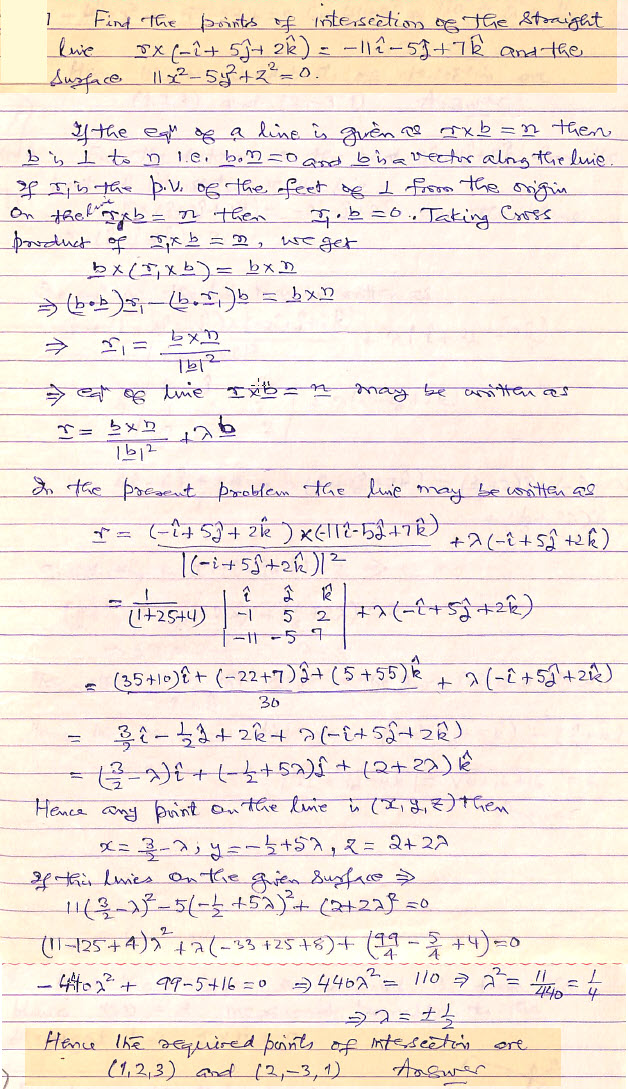 1 Find the points of intersection of the straight
line r×(-î+5ĵ+2k̂) = -11î-5ĵ+7k̂ and the
surface 11x²-5y²+z²=0.
If the eqⁿ of a line is given as r×b=n then
b is ⊥ to n i.e. b.n=0 and b is a vector along the line.
If r₁ is the p.v. of the feet of ⊥ from the origin
on the line r×b=n then r₁.b=0. Taking Cross
product of r₁×b=n, we get
b×(r₁×b)=b×n
⇒(b.b)r₁-(b.r₁)b = b×n
⇒ r₁ = b×n / |b|²
⇒ eqⁿ of line r×b=n may be written as
r = b×n / |b|² + λb
In the present problem the line may be written as
r = (-î+5ĵ+2k̂)×(-11î-5ĵ+7k̂) / |(-i+5ĵ+2k̂)|² + λ(-î+5ĵ+2k̂)
= 1/(1+25+4) | î ĵ k̂ |
| -1 5 2 | + λ(-î+5ĵ+2k̂)
| -11 -5 7 |
= (35+10)î+(-22+7)ĵ+(5+55)k̂ / 30 + λ(-î+5ĵ+2k̂)
= 3/2 î - 1/2 ĵ + 2k̂ + λ(-î+5ĵ+2k̂)
= (3/2-λ)î+(-1/2+5λ)ĵ+(2+2λ)k̂
Hence any point on the line is (x,y,z) then
x=3/2-λ; y=-1/2+5λ, z=2+2λ
If this lies on the given surface ⇒
11(3/2-λ)²-5(-1/2+5λ)²+(2+2λ)²=0
(11-125+4)λ²+λ(-33+25+8)+(99/4-5/4+4)=0
-440λ²+99-5+16=0 ⇒440λ²=110 ⇒ λ²=11/440=1/4
⇒λ=±1/2
Hence the required points of intersection are
(1,2,3) and (2,-3,1) Answer